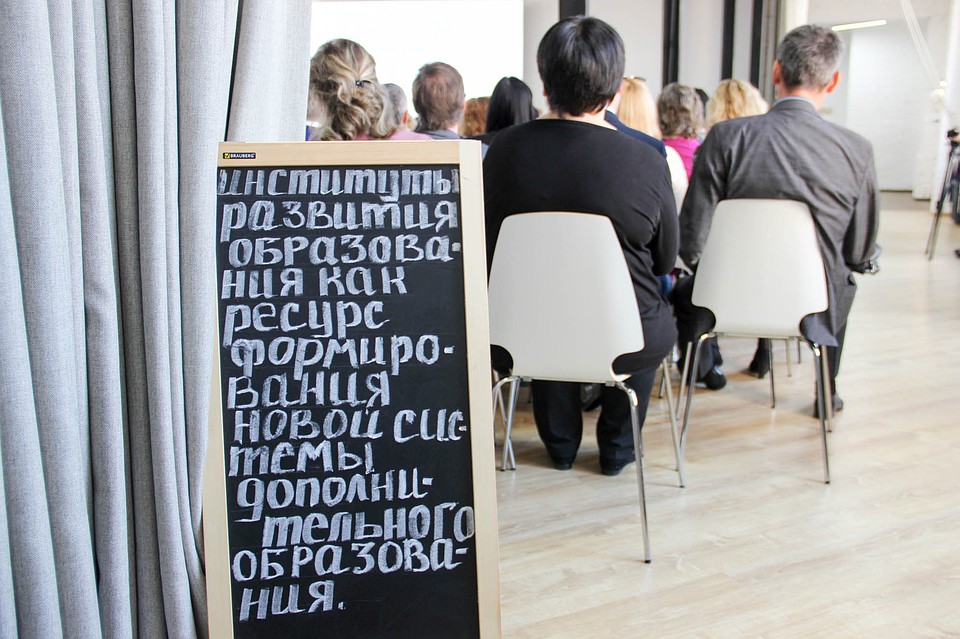 BRAUBERG
институты
развития
образова-
ния как
ресурс
формиро-
вания
новой сис-
темы
дополни-
тельного
образова-
ния.